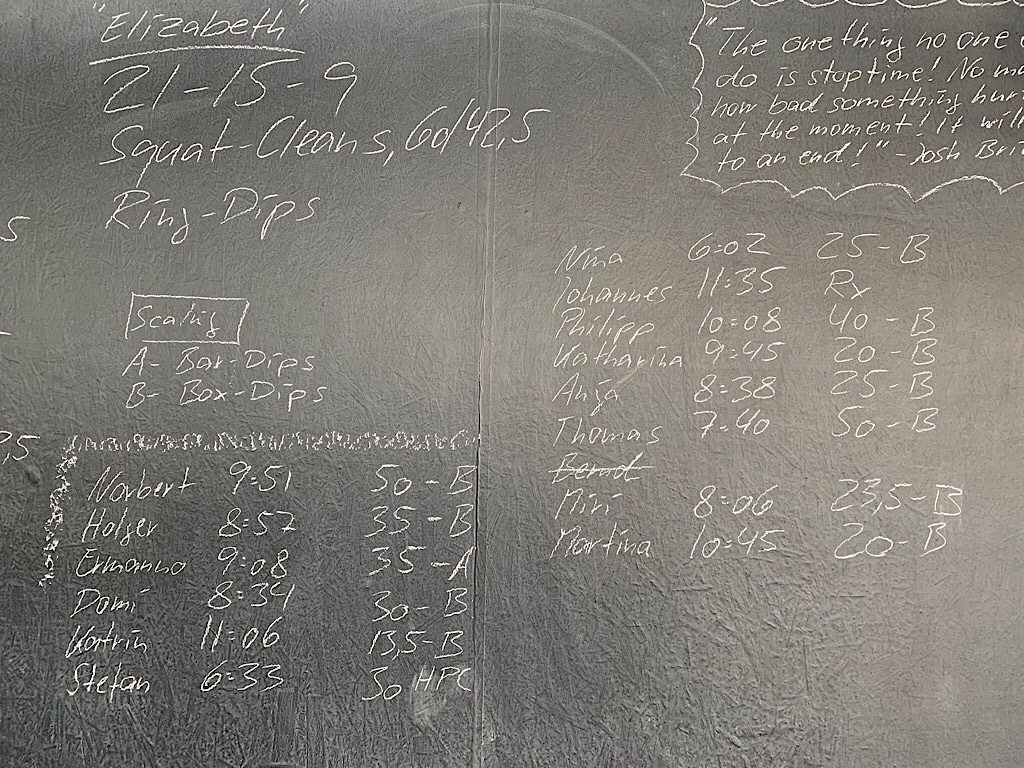 "Elizabeth"
21-15-9
Squat-Cleans, 60/42,5
Ring-Dips
Scaling
A- Bar-Dips
B- Box-Dips
Norbert 9:51 50-B
Holger 8:57 35-B
Ermanno 9:08 35-A
Domi 8:34 30-B
Katrin 11:06 13,5-B
Stefan 6:33 30 HPC
"The one thing no one
do is stop time! No
how bad something
at the moment! It will
to an end!" - Josh
Nina 6:02 25-B
Johannes 11:35 Rx
Philipp 10:08 40-B
Katharina 9:45 20-B
Anja 8:38 25-B
Thomas 7:40 50-B
Bernd
Miri 8:06 23,5-B
Martina 10:45 20-B